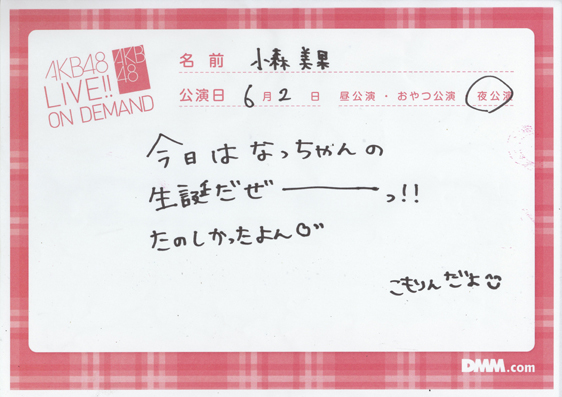 AKB48
LIVE!!
ON DEMAND
AKB
48
名前 小森美果
公演日 6月2日 昼公演・おやつ公演 夜公演
今日はなっちゃんの
生誕だぜーーーっ!!
たのしかったよん
こもりんだよ
DMM.com